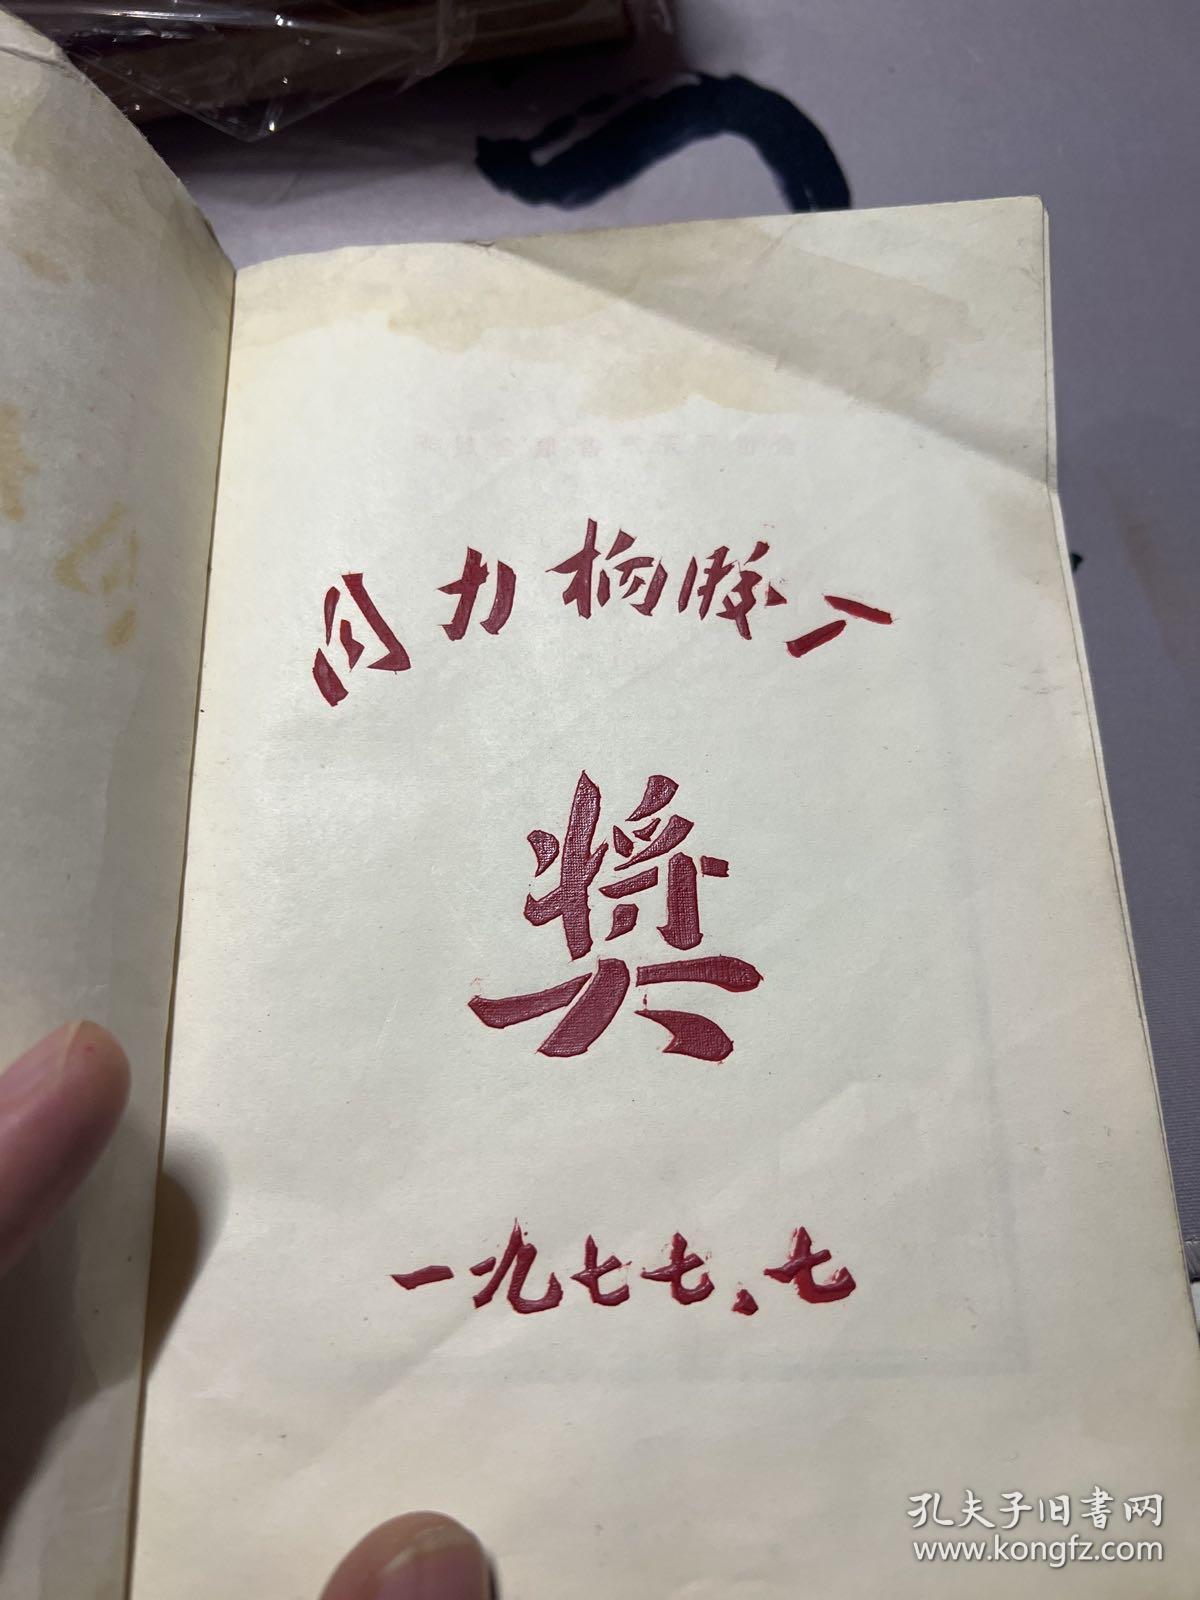 回力橡胶厂
奖
一九七七、七
孔夫子旧書网
www.kongfz.com